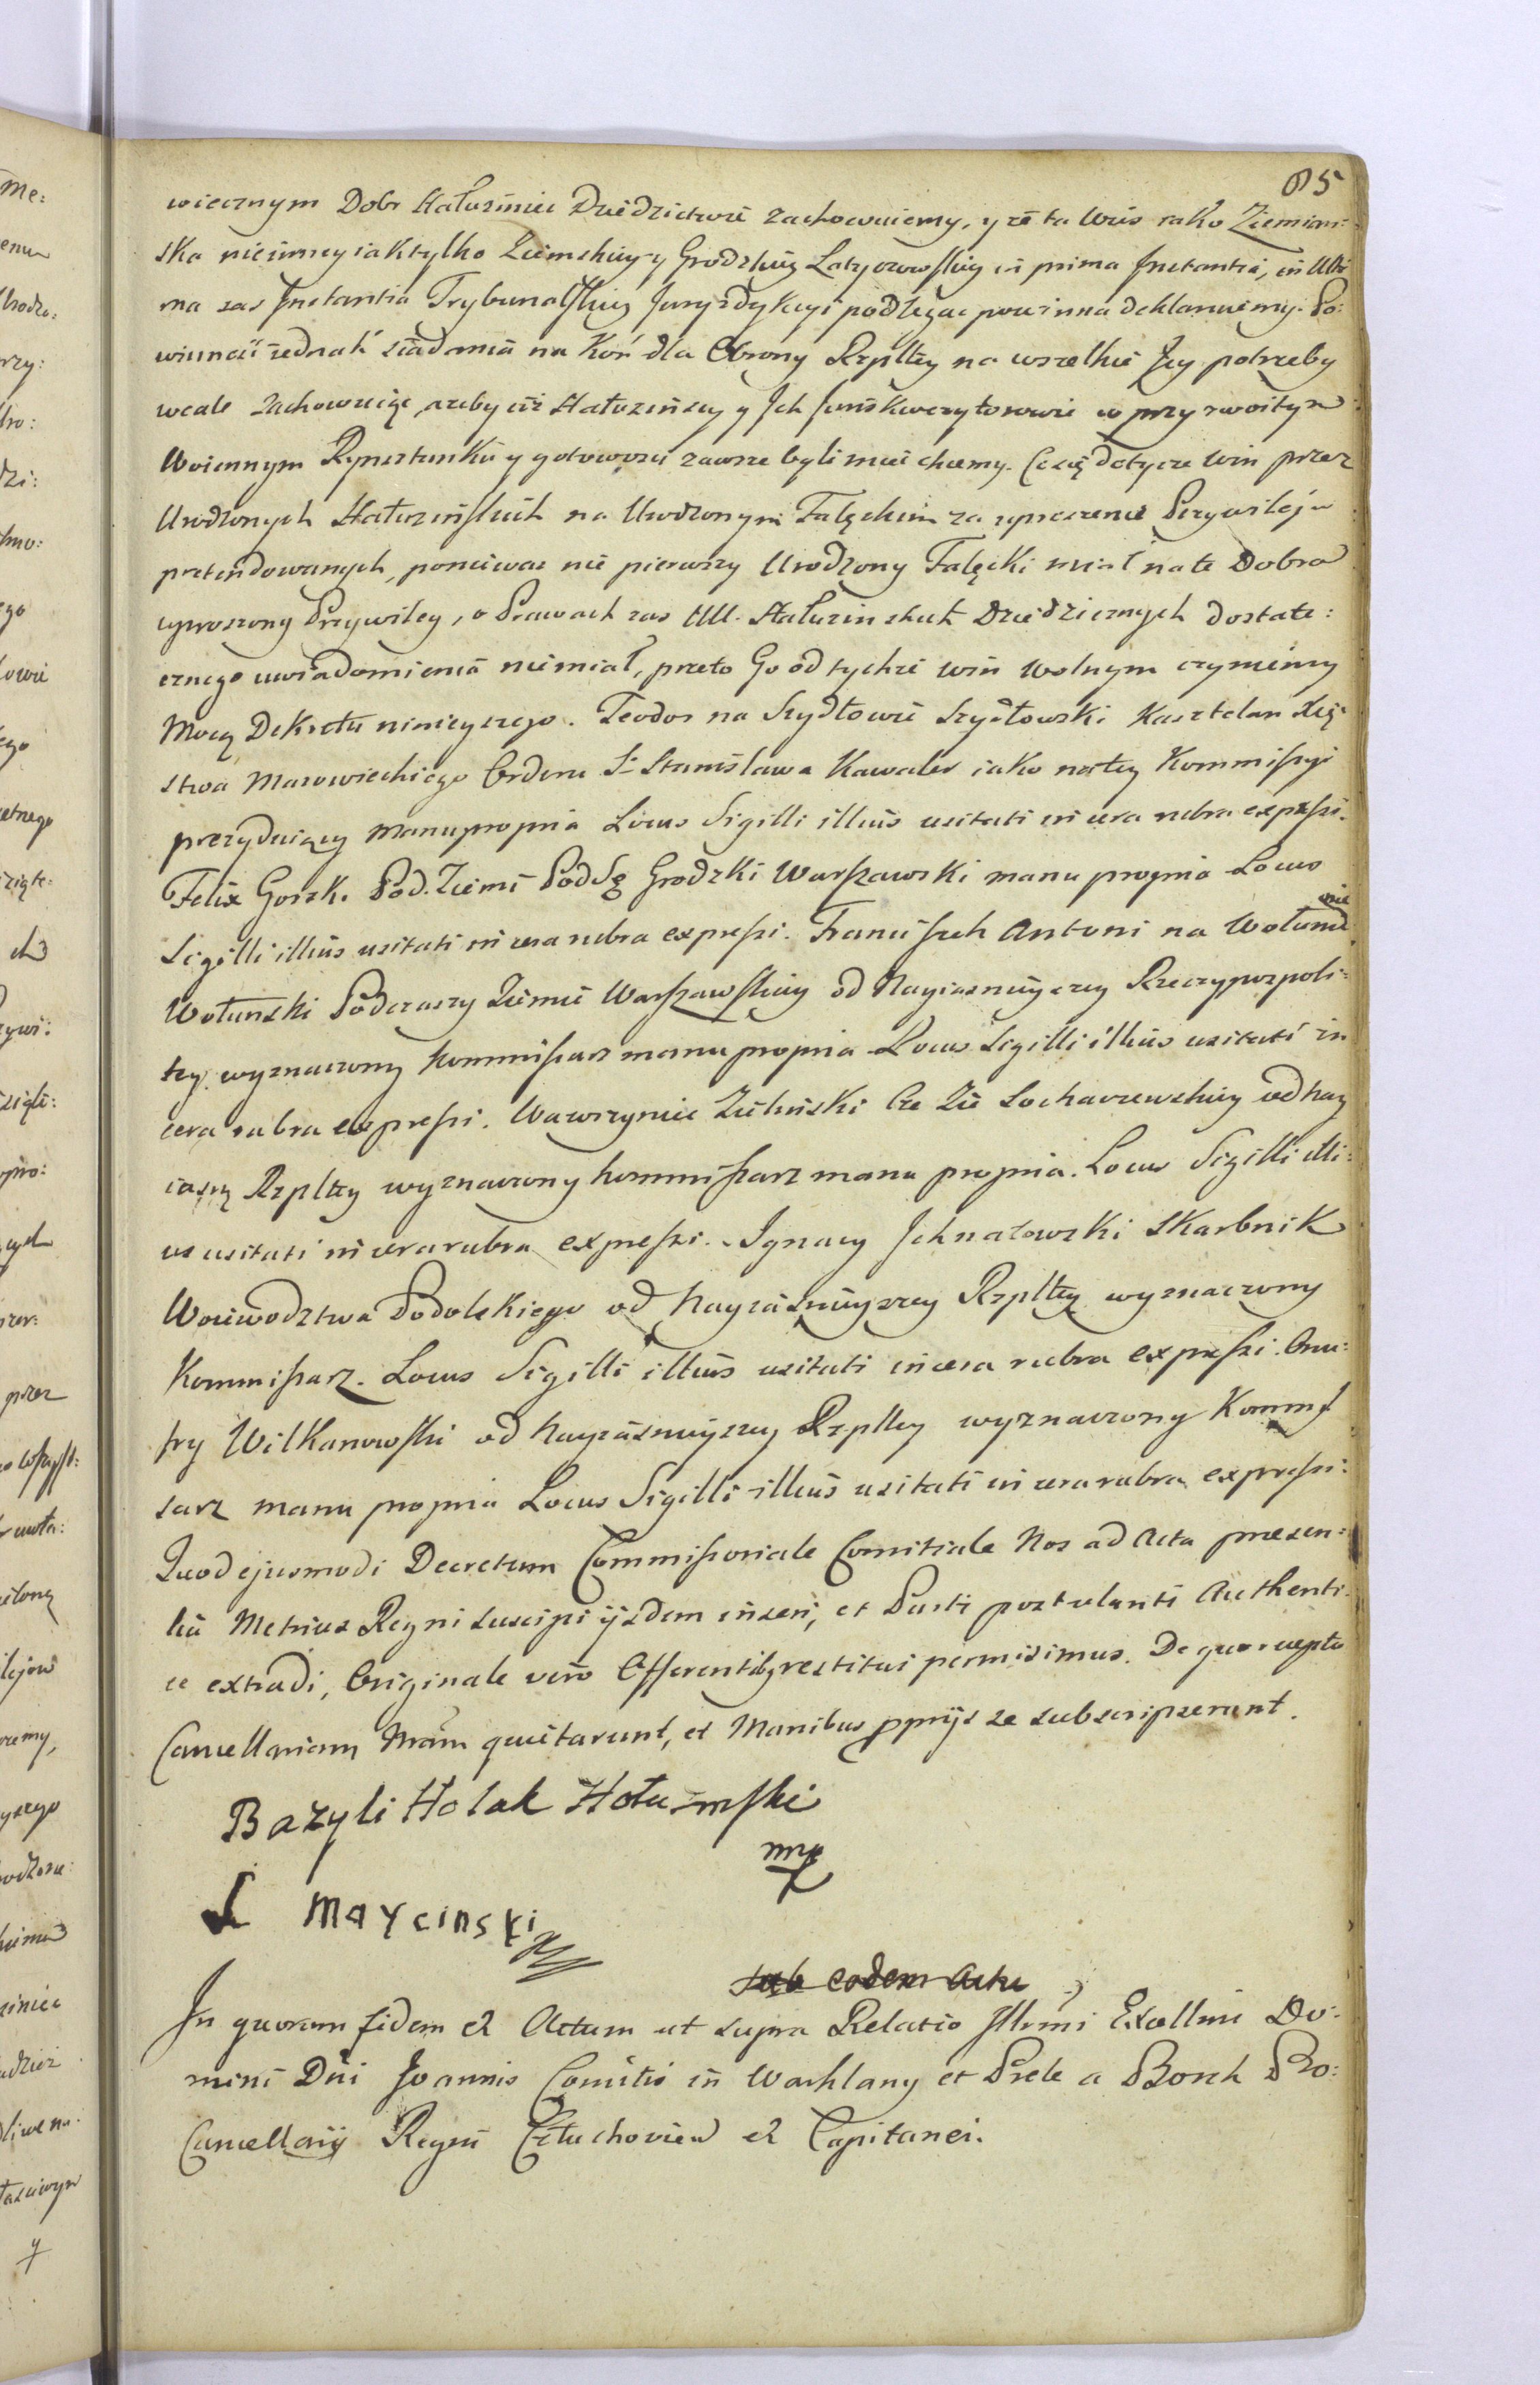 85
wiecznym Dobr Hałuziniec Dziedzictwie zachowuiemy, y że ta Wieś iako Ziemian:
ska nieinney iak tylko Ziemskiey y Grodzkiey Latyczowskiey in prima Instantia, in Ulti
ma zas Instantia Trybunalskiey Juryzdykcyi podlegac powinna deklaruiemy. Po:
winność iednak siadania na Koń dla Obrony Rzpltey na wszelkie Jey potrzeby
wcale zachowuiąc, azeby ciż Hałuzińscy y Ich Sukcessorowie w przyzwoitym
Woiennym Rynsztunku y gotowosci zawsze byli mieć chcemy. Co się dotycze win przez
Urodzonych Hałuzińskich na Urodzonym Falęckim za uproszenie Przywileju
pretendowanych, poniewaz nie pierwszy Urodzony Falęcki miał na te Dobra
uproszony Przywiley, o Prawach zas UU. Hałuzinskich Dziedzicznych dostate:
cznego uwiadomienia niemiał, przeto Go od tychże win wolnym czyniemy
Mocą Dekretu ninieyszego. Teodor na Szydłowie Szydłowski Kasztelan Xię
stwa Mazowieckiego Orderu S. Stanisława Kawaler iako na tey Kommissyi
prezyduiący manu propria Locus Sigilli illius usitati in cera rubra expressi.
Felix Gorsk. Pod. Ziemi Podsę Grodzki Warszawski manu propria Locus
Sigilli illius usitati in cera rubra expressi. Franciszek Antoni na Wołuniu
Wołunski Podczaszy Ziemie Warszawskiey od Nayiasnieyszey Rzeczypospoli:
tey wyznaczony Kommissarz manu propria Locus Sigilli illius usitati in
cera rubra expressi. Wawrzyniec Zieliński Cze Zie Sochaczewskiey od Nay
iasny Rzpltey wyznaczony Kommissarz manu propria. Locus Sigilli illi:
us usitati in cera rubra expressi. Ignacy Jchnatowski Skarbnik
Woiewodztwa Podolskiego od Nayiaśnieyszey Rzpltey wyznaczony
Kommissarz. Locus Sigilli illius usitati in cera rubra expressi. Onu:
fry Wilkanowski od Nayiaśnieyszey Rzpltey wyznaczony Kommis
sarz manu propria Locus Sigilli illius usitati in cera rubra expressi:
Quod ejusmodi Decretum Commissoriale Comitiale Nos ad Acta praesen:
tia Metrices Regni suscipi ijsdem inseri, et Parti postulanti Authenti
ce extradi, Originale vero Offerentibus restitui permisimus. De quo recepto
Cancellariam Nram quietarunt, et Manibus pprijs se subscripserunt.
Bazyli Holak Hołuzinski
mp
S Maycinski
sub eodem Actu
In quorum fidem et Actum ut supra Relatio Illrmi Excellmi Do:
mini Dni Joannis Comitis in Warklany et Prele a Borch Pro:
Cancellarij Regni Człuchovien et Capitanei.